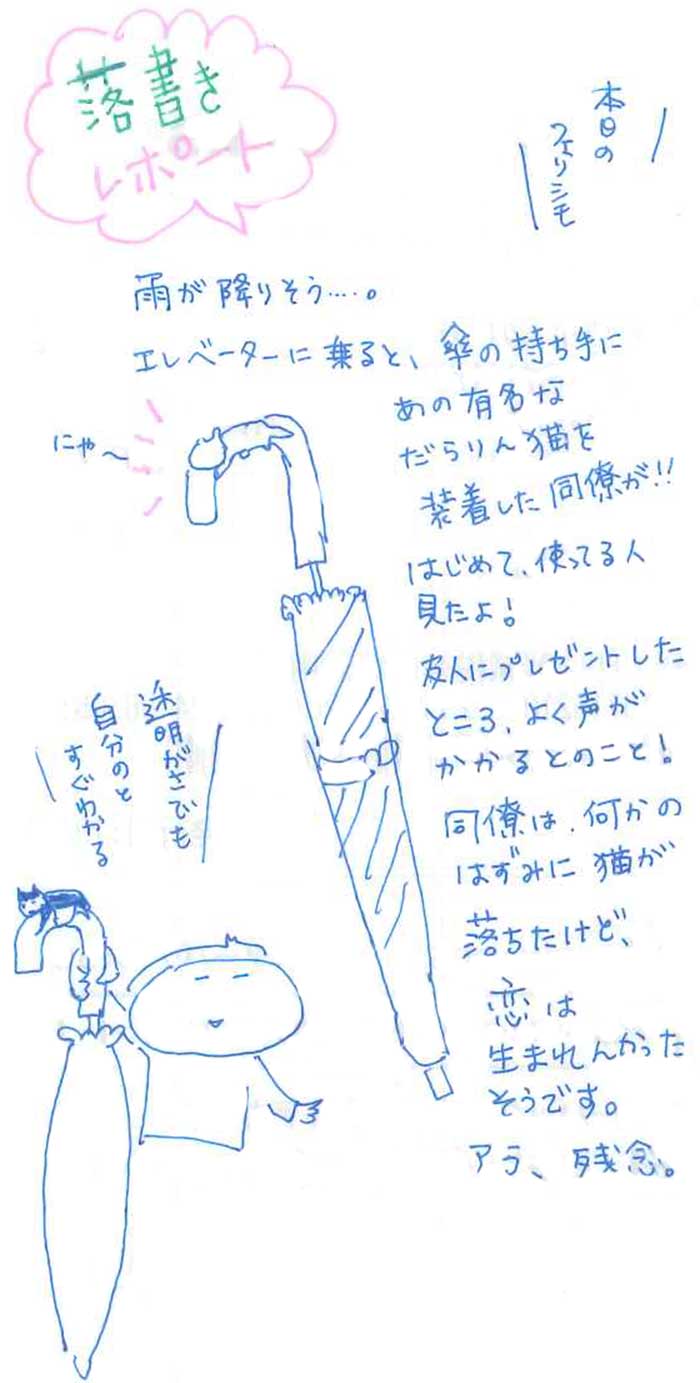 落書き
レポート
本日の
フェリシモ
雨が降りそう…。
エレベーターに乗ると、傘の持ち手に
あの有名な
だらりん猫を
装着した同僚が!!
にゃ〜
はじめて、使ってる人
見たよ!
友人にプレゼントした
ところ、よく声が
かかるとのこと!
同僚は、何かの
はずみに猫が
落ちたけど、
恋は
生まれんかった
そうです。
アラ、残念。
透明がさでも
自分のと
すぐわかる